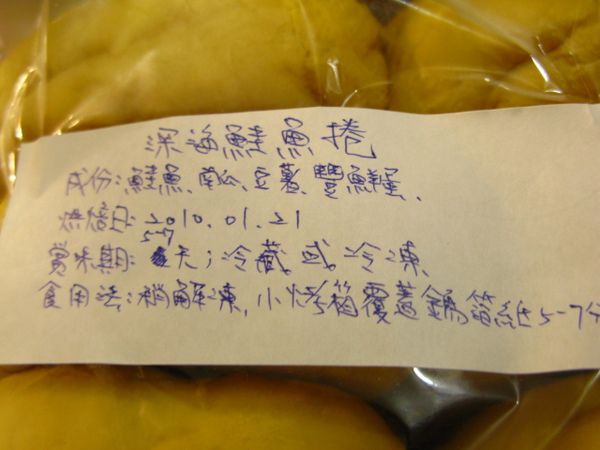 深海鮭魚捲
成份:鮭魚、南瓜、豆薯、豐鮮蛋、
烘焙日:2010.01.21
賞味期:5-7天;冷藏或冷凍
食用法:稍解凍,小烤箱覆蓋鋁箔紙5-7分